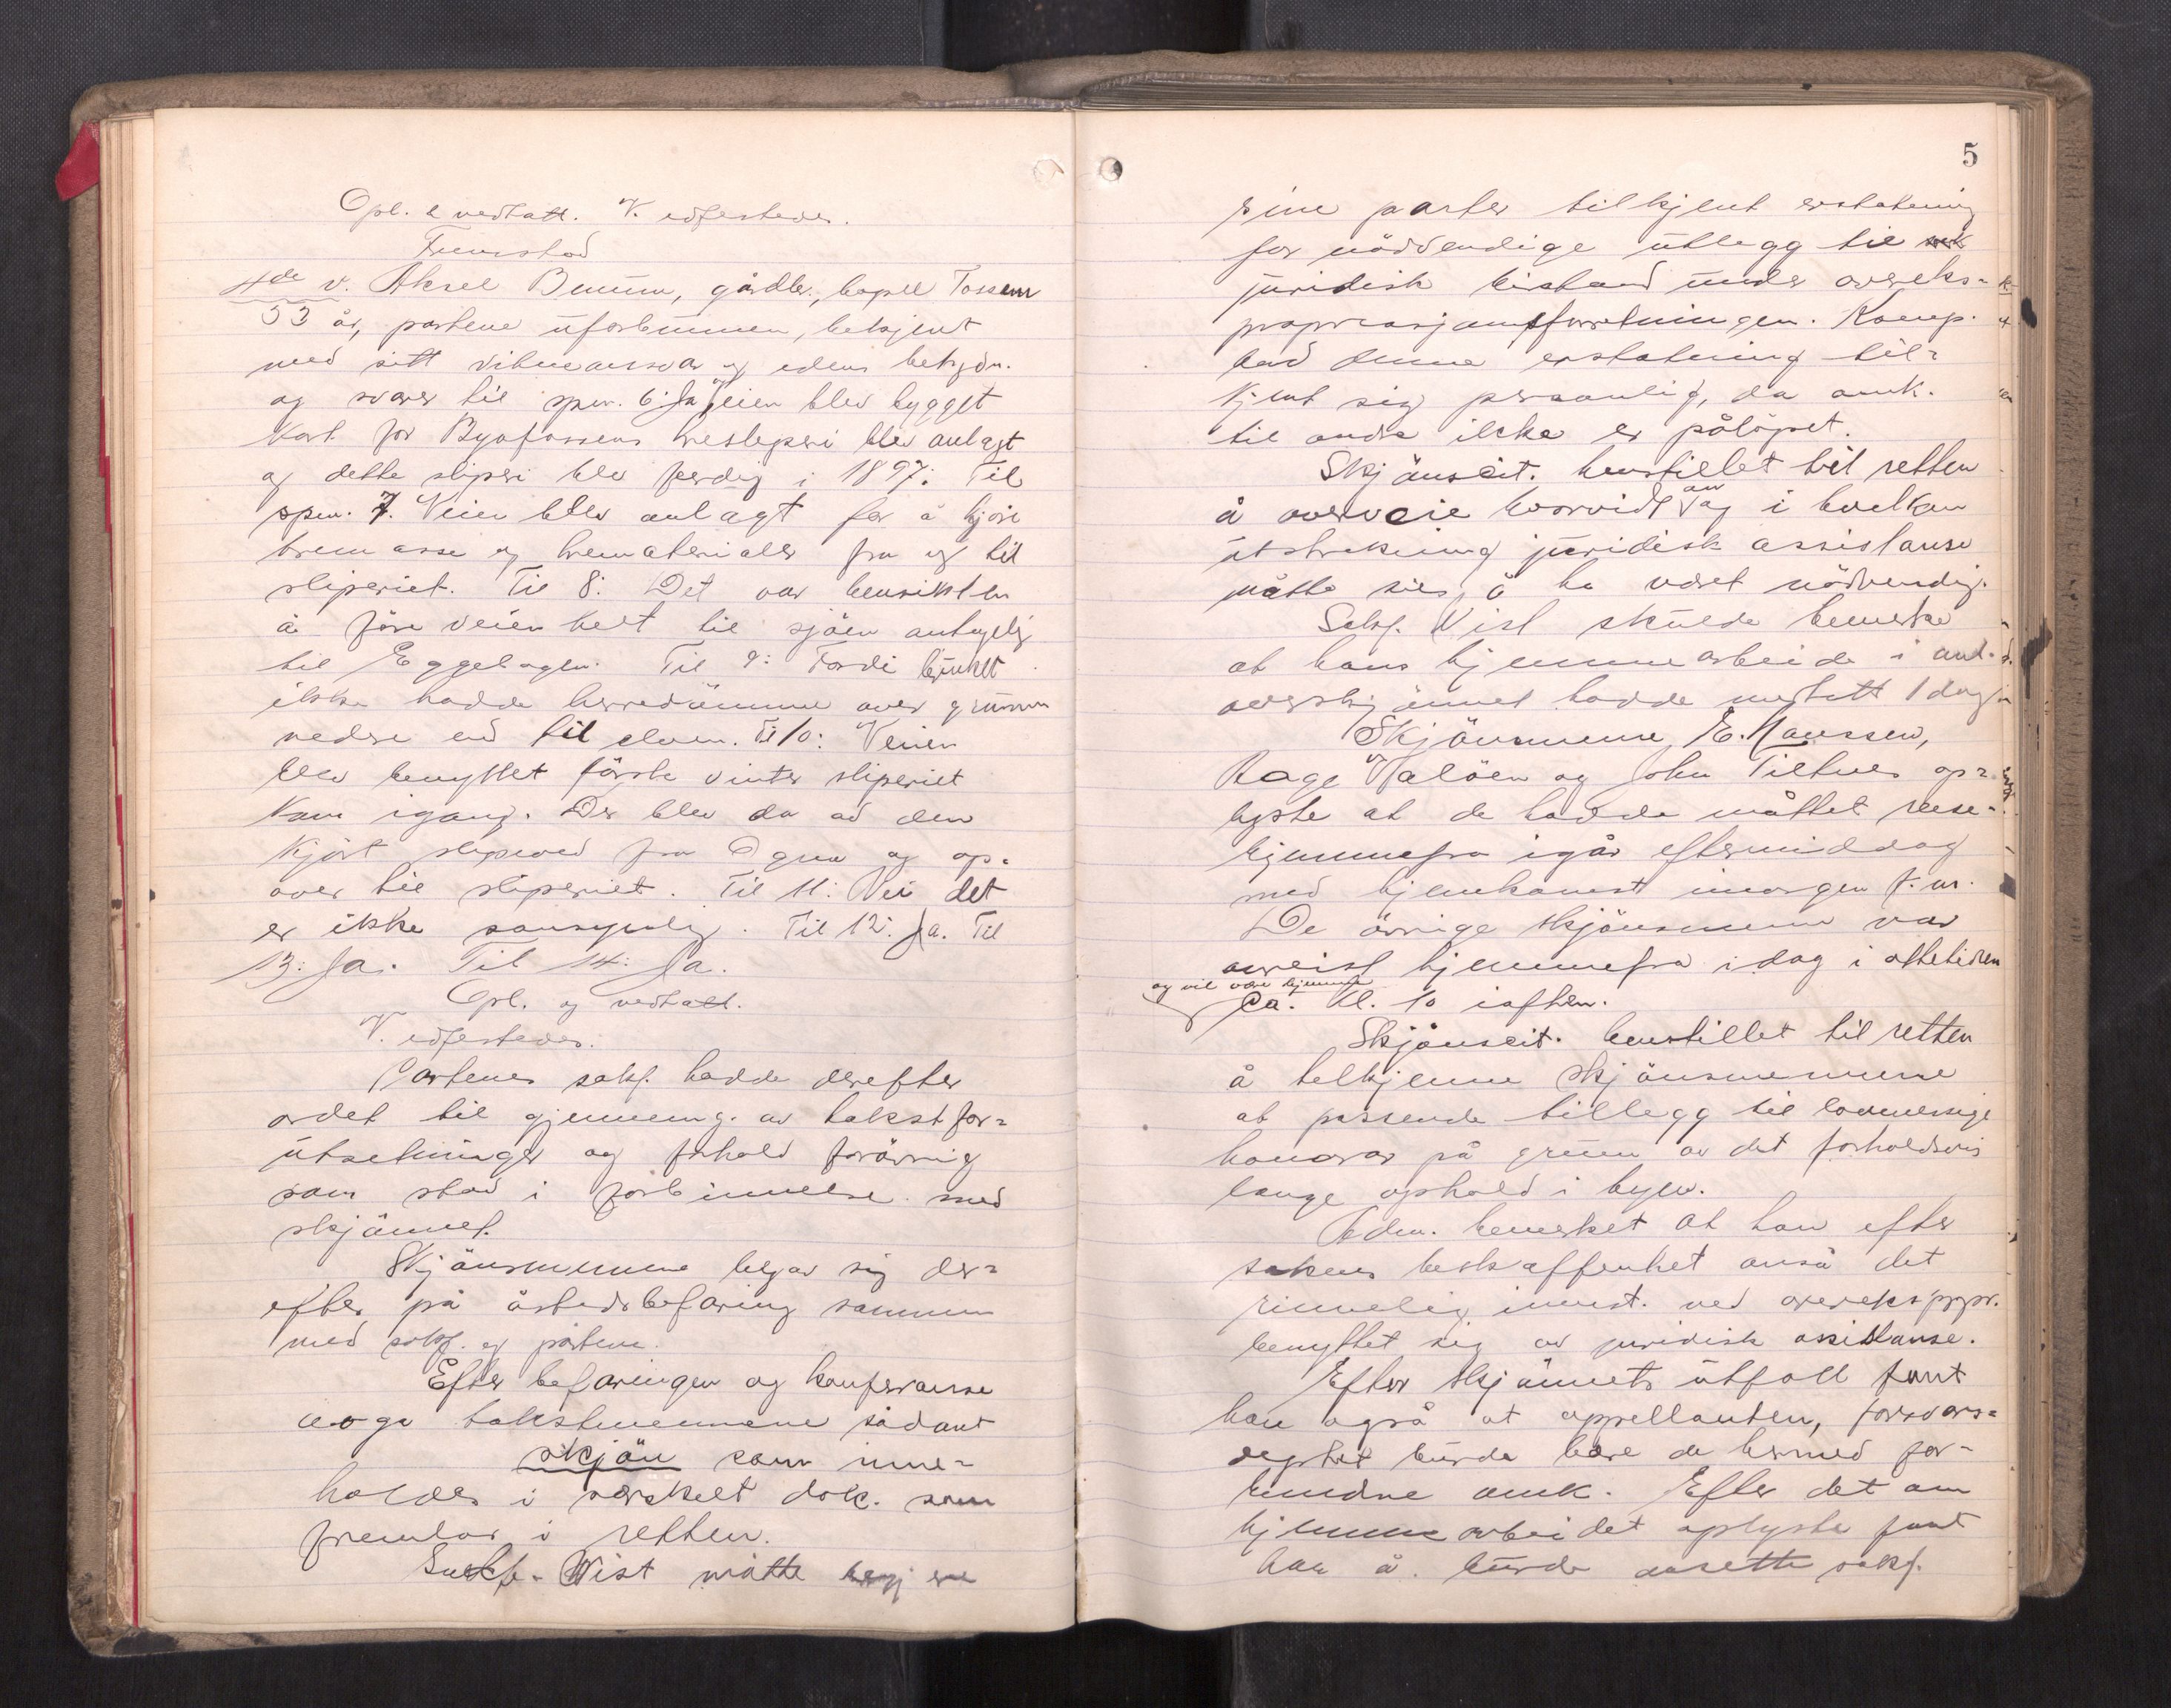 Opl. & vedtatt. V. edfestedes.
Fremstod
4de v. Aksel Bruun, gårdbr., bopel Fossem
53 år, partene uforbunnen, bekjent
med sitt vitneansvar og edens betydn.
og svarer til spm. 6: Ja, veien blev bygget
kort før Byafossens tresliperi blev anlagt
og dette sliperi blev ferdig i 1897. Til
spm. 7. Veien blev anlagt for å kjøre
tremasse og trematerialer fra og til
sliperiet. Til 8: Det var hensikten
å føre veien helt til sjøen antagelig
til Eggebogen. Til 9: Fordi bruket
ikke hadde herredømme over grunnen
nedre end til elven. Til 10: Veien
blev benyttet første vinter sliperiet
kom igang. Der blev da ad den
kjørt slipeved fra Ogna og op-
over til sliperiet. Til 11: Nei det
er ikke sansynlig. Til 12: Ja. Til
13: Ja. Til 14: Ja.
Opl. og vedtatt.
V. edfestedes.
Partenes sakf. hadde derefter
ordet til gjennemg. av takstfor-
utsetninger og forhold forøvrig
som stod i forbinnelse med
skjønnet.
Skjønsmennene begav sig der-
efter på åstedsbefaring sammen
med sakf. og partene.
Efter befaringen og konferanse
avga takstmennene sådant
skjøn som inne-
holdes i særskilt dok. som
fremlas i retten.
Sakf. Wist måtte begjere
5
sine parter tilkjent erstatning
for nødvendige utlegg til
juridisk bistand under overeks-
propriasjonsforretningen. Komp.
bad denne erstatning til-
kjent sig personlig, da omk.
til andre ikke er påløpet.
Skjønscit. henstillet til retten
å overveie hvorvidt av og i hvilken
utstrekning juridisk assistanse
måtte sies å ha været nødvendig.
Sakf. Wist skulde bemerke
at hans hjemmearbeide i anl.
overskjønnet hadde medtatt 1 dag
Skjønsmennene E. Hanssen,
Aage Haløen og John Tiltnes op-
lyste at de hadde måttet reise
hjemmefra igår eftermiddag
med hjemkomst imorgen f.m.
De øvrige skjønsmenn var
avreist hjemmefra idag i ottetiden
og vil være hjemme
ca. kl. 10 iaften.
Skjønscit. henstillet til retten
å tilkjenne skjønsmennene
et passende tillegg til lovmessige
honorar på grunn av det forholdsvis
lange ophold i byen.
Adm. bemerket at han efter
sakens beskaffenhet anså det
rimelig innst. ved overekspropr.
benyttet sig av juridisk assistanse.
Efter skjønnets utfall fant
han også at appellanten, forsvars-
deptet burde bære de hermed for-
bundne omk. Efter det om
hjemmearbeidet oplyste fant
han å burde ansette sakf.